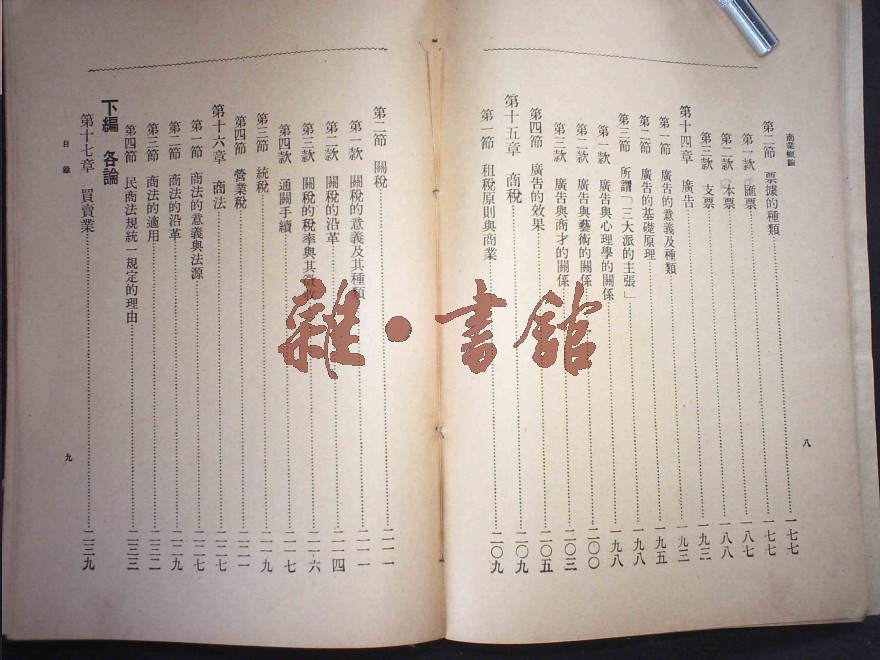 商業概論
八
第二節 票據的種類……一七七
第一款 匯票……一七七
第二款 本票……一八七
第三款 支票……一八八
第十四章 廣告……一九三
第一節 廣告的意義及種類……一九三
第二節 廣告的基礎原理……一九五
第三節 所謂「三大派的主張」……一九八
第一款 廣告與心理學的關係……一九八
第二款 廣告與藝術的關係……二〇〇
第三款 廣告與商才的關係……二〇三
第四節 廣告的效果……二〇五
第十五章 商稅……二〇九
第一節 租稅原則與商業……二〇九
第二節 關稅……二一一
第一款 關稅的意義及其種類……二一一
第二款 關稅的沿革……二一四
第三款 關稅的稅率與其徵收……二一六
第四款 通關手續……二一七
第三節 統稅……二一九
第四節 營業稅……二二一
第十六章 商法……二二七
第一節 商法的意義與法源……二二七
第二節 商法的沿革……二二九
第三節 商法的適用……二三二
第四節 民商法規統一規定的理由……二三三
下編 各論
第十七章 買賣業……二三九
目錄
九
雜·書館